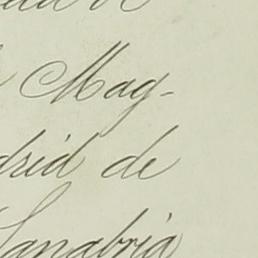 Mag-
drid de
Sanabria